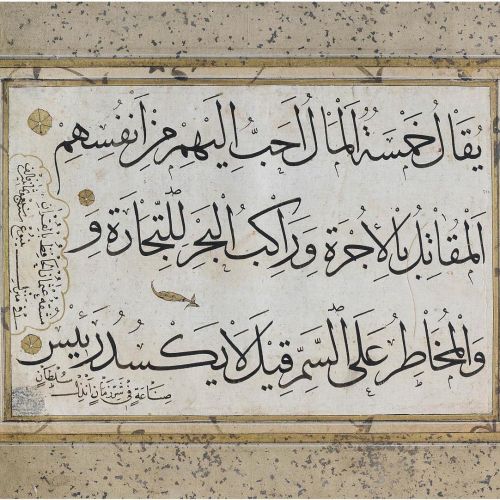 يُقَالُ خَمْسَةٌ اَلْمَالُ اَحَبُّ اِلَيْهِمْ مِنْ اَنْفُسِهِمْ
اَلْمُقَاتِلُ بِالْاُجْرَةِ وَرَاكِبُ الْبَحْرِ لِلتِّجَارَةِ وَ
وَالْمُخَاطِرُ عَلَى السَّمِّ قِيلَ لَا يَكْسُدُ رَئِيسُ
صناعة في شر زمان سلطان
عثمان